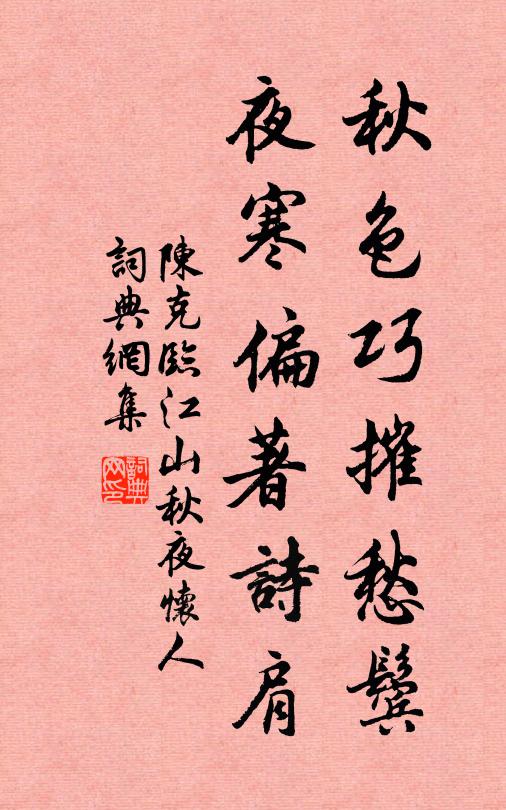 秋色巧摧愁鬢
夜寒偏著詩肩
陳克臨江山秋夜懷人
詞典網集
詞典网印